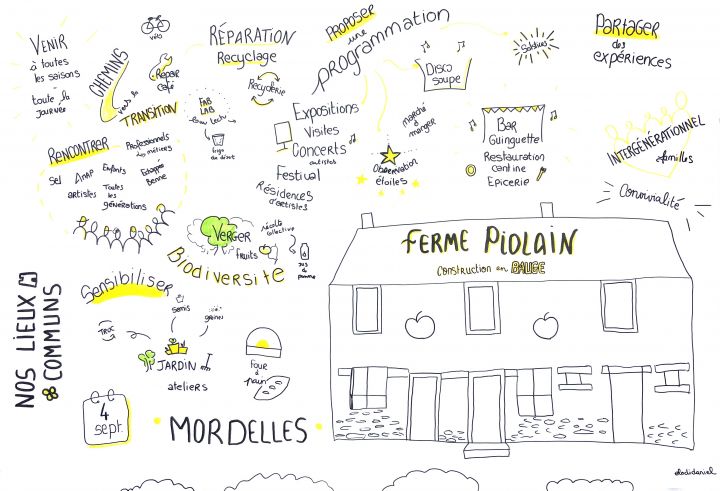 VENIR
à toutes
les saisons
toute la
journée
vélo
CHEMINS
vers la
TRANSITION
Repair
Café
RÉPARATION
Recyclage
Recyclerie
FAB
LAB
Low tech
frigo
du désert
PROPOSER
une
programmation
Expositions
Visites
Concerts
artistes
Festival
Résidences
d'artistes
Disco
soupe
marché à
manger
Observation
étoiles
Solstices
BAR
Guinguette
Restauration
cantine
Epicerie
PARTAGER
des
expériences
INTERGÉNÉRATIONNEL
familles
Convivialité
RENCONTRER
Professionnels
métiers
Sel
Amap
Enfants
Echappée
Benne
artistes
Toutes
les
générations
VERGER
récolte
collective
fruits
jus de
pomme
Biodiversité
Sensibiliser
semis
graines
TROC
JARDIN
ateliers
Four
à
pain
NOS LIEUX
COMMUNS
4
sept.
MORDELLES
FERME PIOLAIN
Construction en BAUGE
elodidaniel